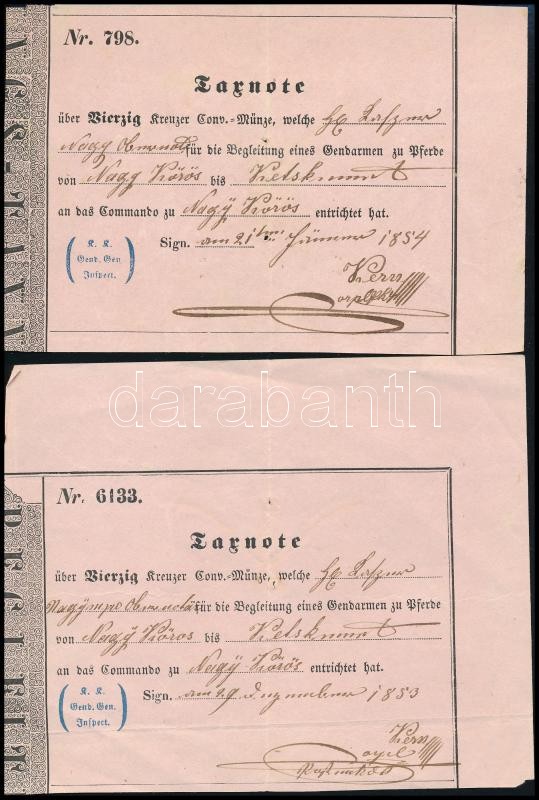 Nr. 798.
Taxnote
über Vierzig Kreuzer Conv.-Münze, welche
Nagy für die Begleitung eines Gendarmen zu Pferde
von Nagy Körös bis Ketskemet
an das Commando zu Nagy Körös entrichtet hat.
Sign. am 21ten Jänner 1854
K. K.
Gend. Gen.
Inspect.
Kern
darabanth
Nr. 6133.
Taxnote
über Vierzig Kreuzer Conv.-Münze, welche
für die Begleitung eines Gendarmen zu Pferde
von Nagy Körös bis Ketskemet
an das Commando zu Nagy Körös entrichtet hat.
Sign. am 29 Dezember 1853
K. K.
Gend. Gen.
Inspect.
Kern